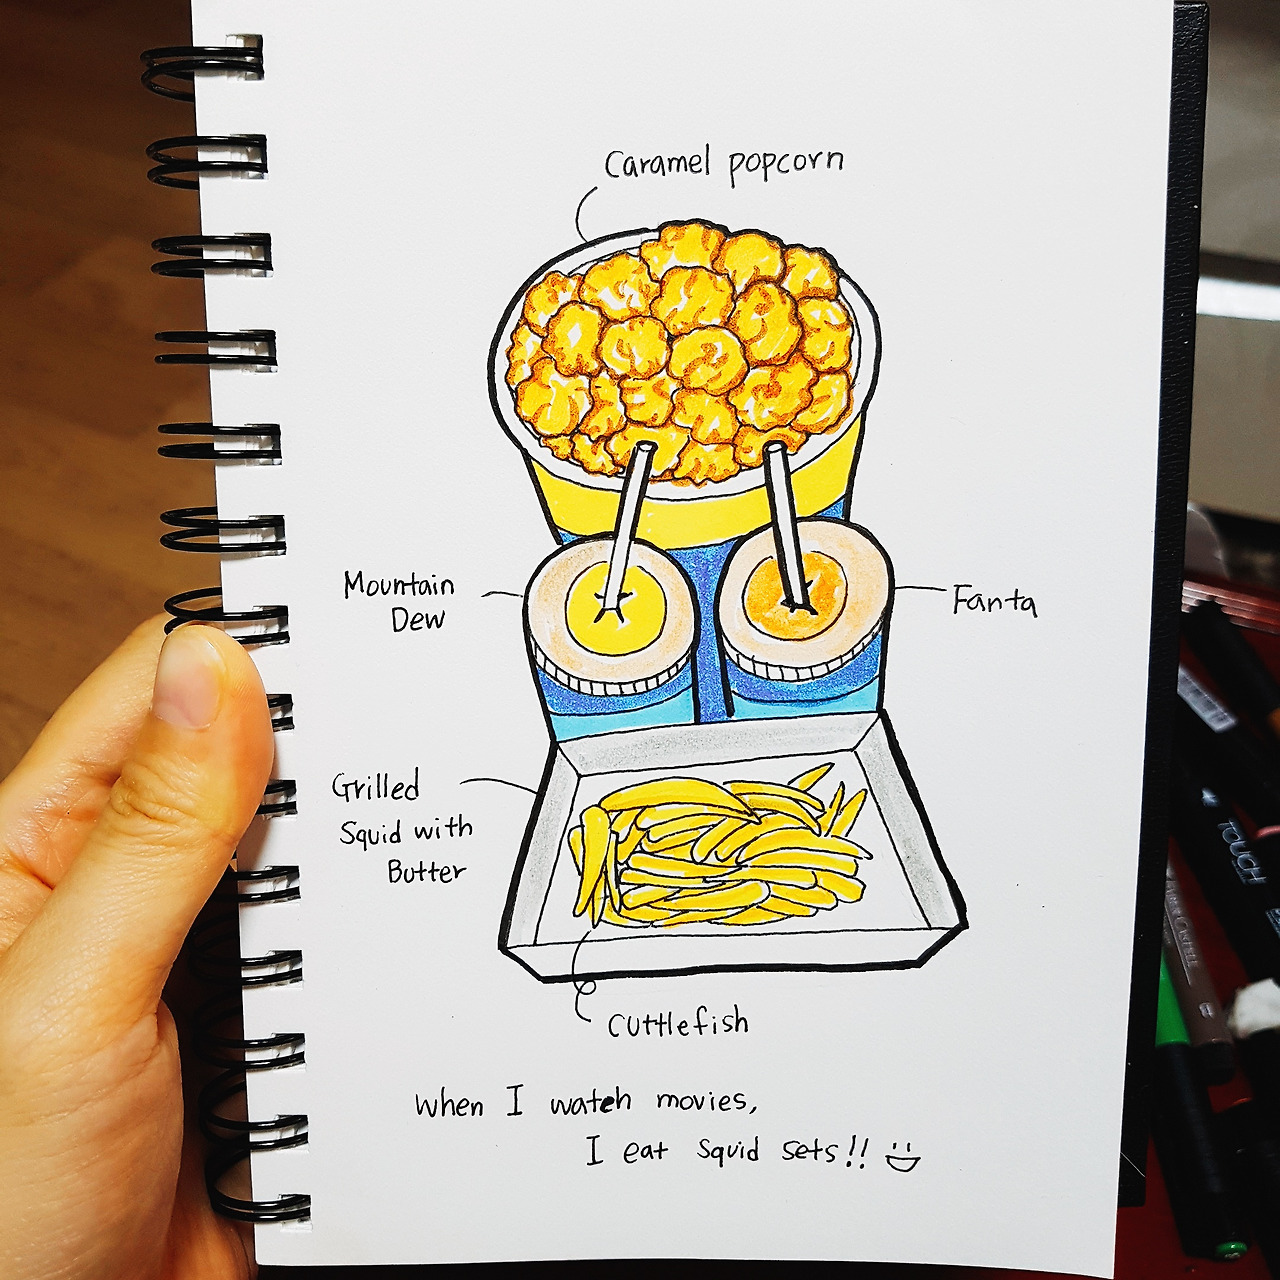 Caramel popcorn
Mountain
Dew
Fanta
Grilled
Squid with
Butter
Cuttlefish
When I watch movies,
I eat squid sets!!
TOUCH